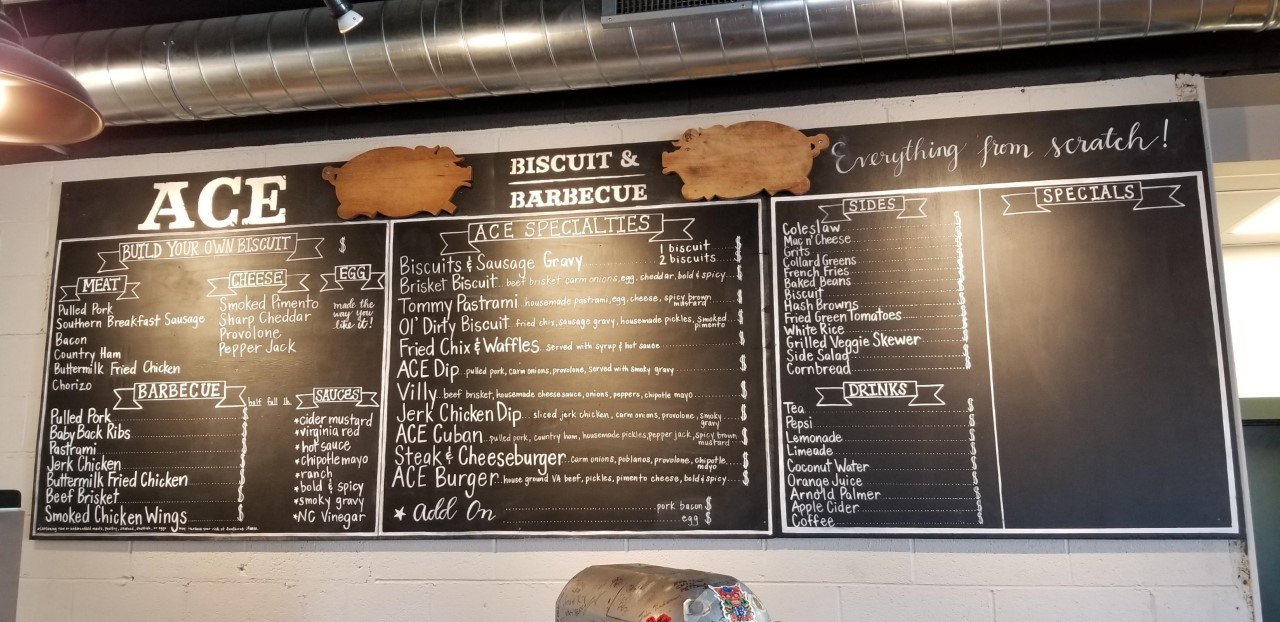 ACE
BISCUIT &
BARBECUE
Everything from scratch!
BUILD YOUR OWN BISCUIT $
MEAT
Pulled Pork
Southern Breakfast Sausage
Bacon
Country Ham
Buttermilk Fried Chicken
Chorizo
CHEESE
Smoked Pimento
Sharp Cheddar
Provolone
Pepper Jack
EGG
made the
way you
like it!
BARBECUE
half full lb.
Pulled Pork $
Baby Back Ribs $
Pastrami $
Jerk Chicken $
Buttermilk Fried Chicken $
Beef Brisket $
Smoked Chicken Wings $
SAUCES
*cider mustard
*virginia red
*hot sauce
*chipotle mayo
*ranch
*bold & spicy
*smoky gravy
*NC Vinegar
ACE SPECIALTIES
Biscuits & Sausage Gravy 1 biscuit $
2 biscuits $
Brisket Biscuit beef brisket carm onions, egg, cheddar, bold & spicy $
Tommy Pastrami housemade pastrami, egg, cheese, spicy brown $
mustard
Ol' Dirty Biscuit fried chix, sausage gravy, housemade pickles, smoked $
pimento
Fried Chix & Waffles served with syrup & hot sauce $
ACE Dip pulled pork, carm onions, provolone, served with smoky gravy $
Villy beef brisket, housemade cheese sauce, onions, peppers, chipotle mayo $
Jerk Chicken Dip sliced jerk chicken, carm onions, provolone, smoky $
gravy
ACE Cuban pulled pork, country ham, housemade pickles, pepper jack, spicy brown $
mustard
Steak & Cheeseburger carm onions, poblanos, provolone, chipotle $
mayo
ACE Burger house ground VA beef, pickles, pimento cheese, bold & spicy $
* add On pork bacon $
egg $
SIDES
Coleslaw $
Mac n' Cheese $
Grits $
Collard Greens $
French Fries $
Baked Beans $
Biscuit $
Hash Browns $
Fried Green Tomatoes $
White Rice $
Grilled Veggie Skewer $
Side Salad $
Cornbread $
DRINKS
Tea $
Pepsi $
Lemonade $
Limeade $
Coconut Water $
Orange Juice $
Arnold Palmer $
Apple Cider $
Coffee $
SPECIALS